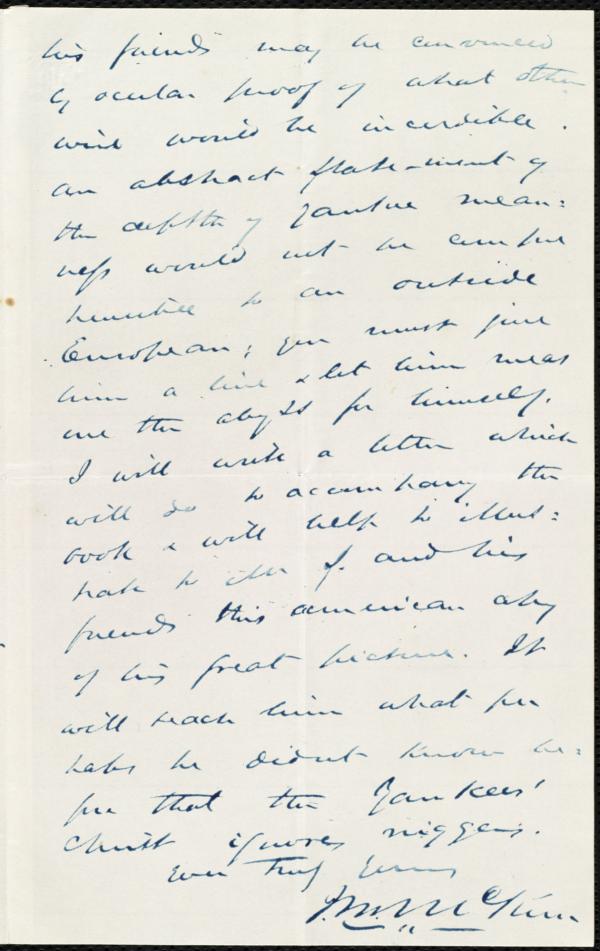 his friends may be convinced
by ocular proof of what other
wise would be incredible.
An abstract state-ment of
the depth of Yankee mean=
ness would not be compre
hensible to an outside
European; you must give
him a line & let him meas
ure the abyss for himself.
I will write a letter which
will do to accompany the
book & will help to illus=
trate to Mr. S. and his
friends this american
of his great picture. It
will teach him what per
haps he didn't know be=
fore that the Yankees'
Christ ignores niggers.
Ever truly yours
J.M. McKim